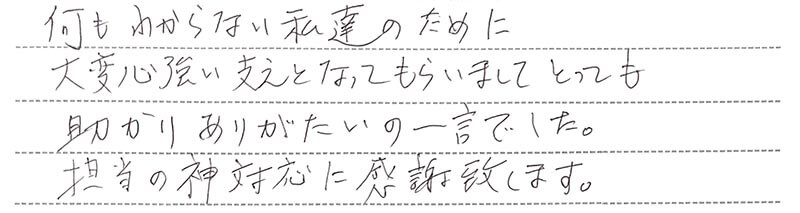 何もわからない私達のために
大変心強い支えとなってもらいまして とっても
助かりありがたいの一言でした。
担当の神対応に感謝致します。